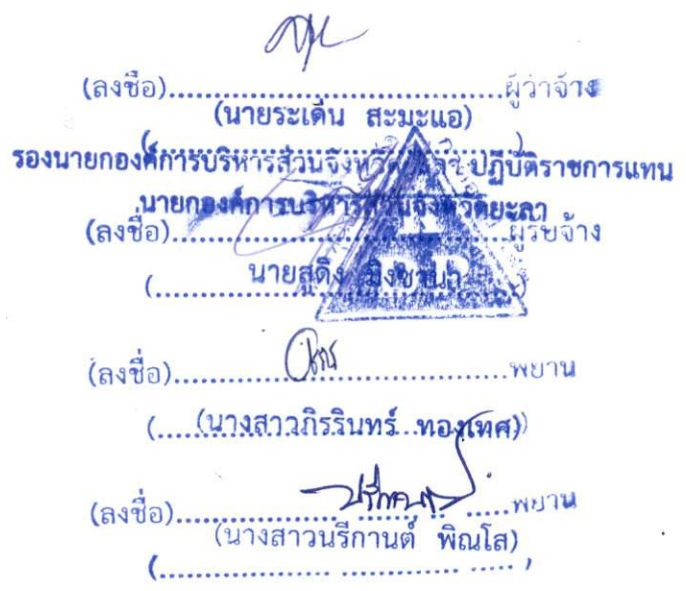 (ลงชื่อ)..................................ผู้ว่าจ้าง
(นายระเด่น สะมะแอ)
(..................................)
รองนายกองค์การบริหารส่วนจังหวัดยะลา ปฏิบัติราชการแทน
นายกองค์การบริหารส่วนจังหวัดยะลา
(ลงชื่อ)..................................ผู้รับจ้าง
(.....นายสูดิง.....)
(ลงชื่อ)..................................พยาน
(.....(นางสาวภิรรินทร์ ทองเทศ))
(ลงชื่อ)..................................พยาน
(นางสาวนรีกานต์ พิณโส)
(..................................)